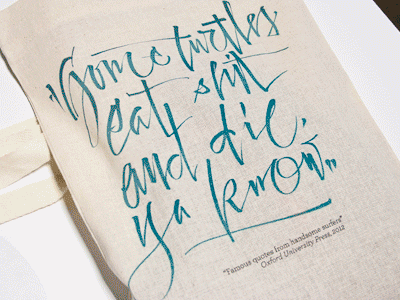 „Some turtles
eat shit
and die,
ya know„
"Famous quotes from handsome surfers"
Oxford University Press, 2012